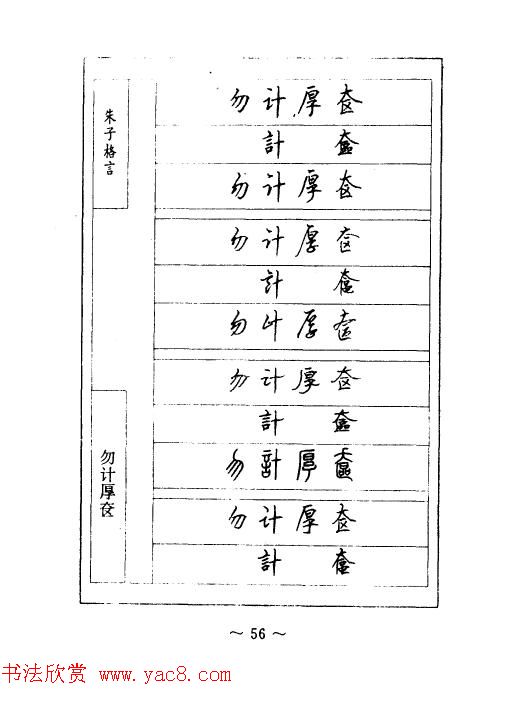 朱子格言
勿计厚奁
勿计厚奁
計 奩
勿计厚奁
勿计厚奁
計 奩
勿计厚奁
勿计厚奁
計 奩
勿計厚奩
勿计厚奁
計 奩
～ 56 ～
书法欣赏 www.yac8.com